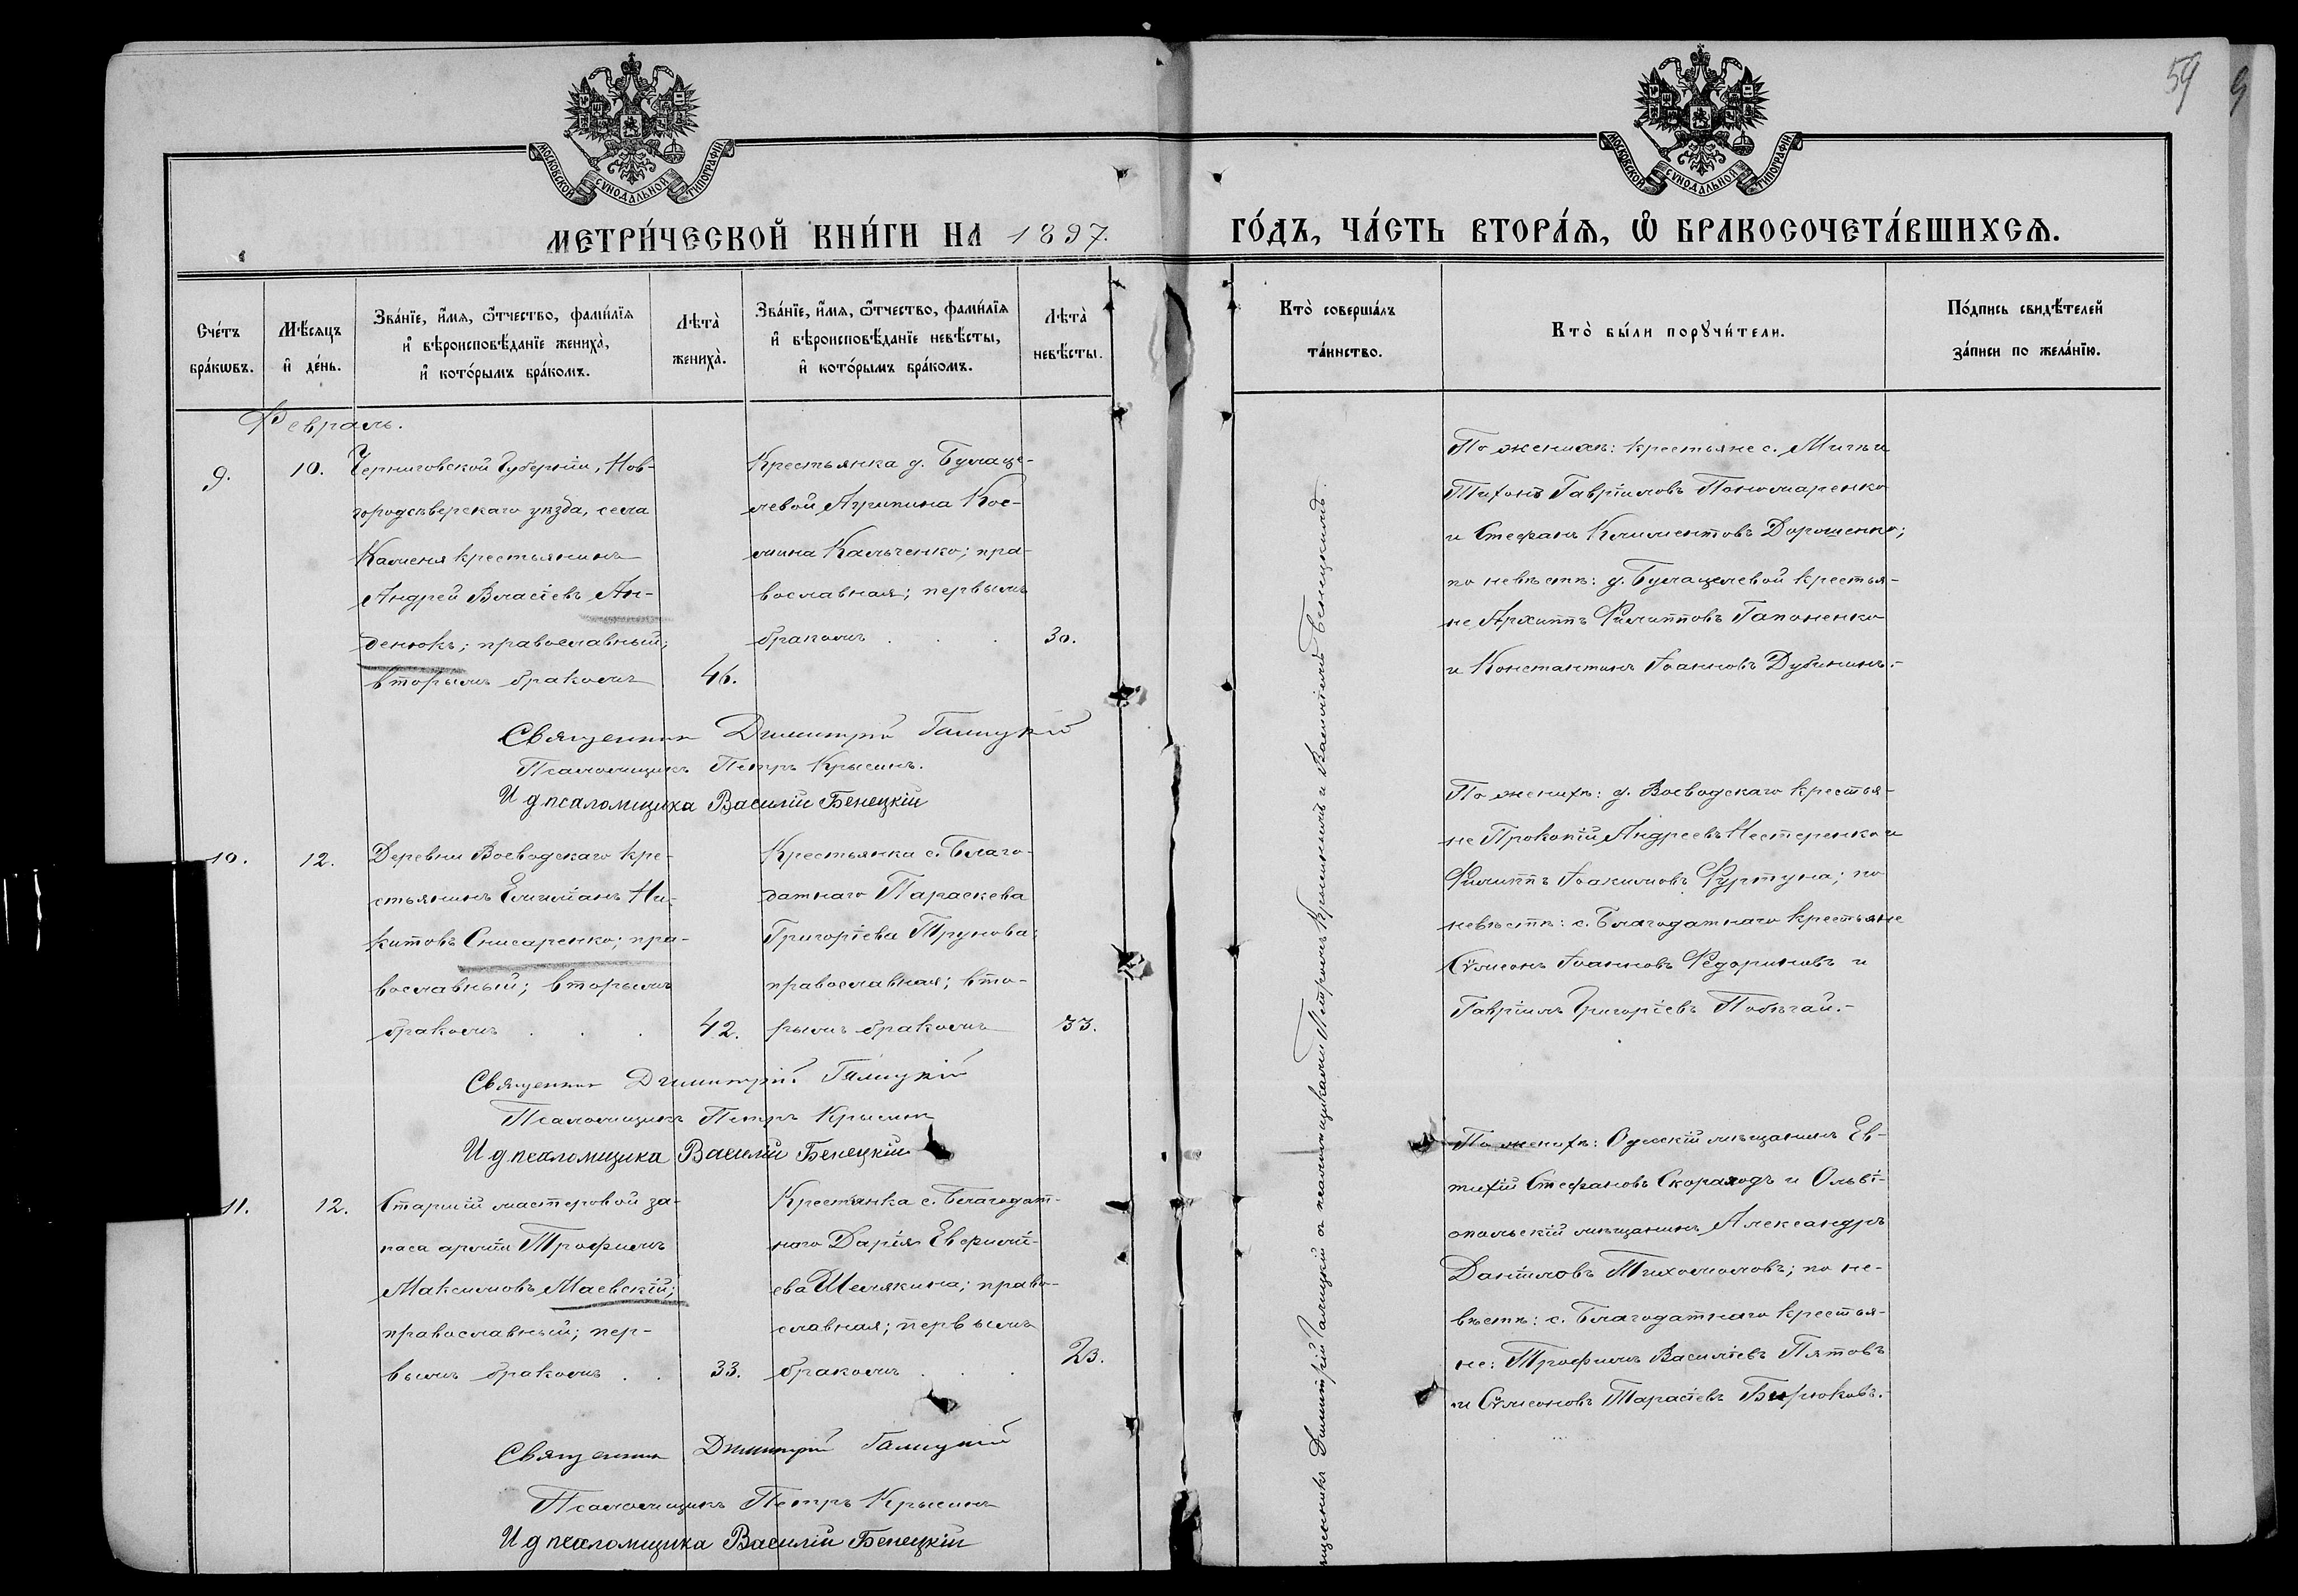 59
9
МОСКОВСКОЙ СѴНОДАЛЬНОЙ ТИПОГРАФІИ
МОСКОВСКОЙ СѴНОДАЛЬНОЙ ТИПОГРАФІИ
МЕТРИ́ЧЕСКОЙ КНИ́ГИ НА 1897.
ГО́ДЪ, ЧА́СТЬ ВТОРА́Ѧ, Ѽ БРАКОСОЧЕТА́ВШИХСѦ.
Сче́тъ
бра́кѡвъ.
Мѣ́сѧцъ
и҆ де́нь.
Зва́нїе, и҆́мѧ, ѻ҆́тчество, фами́лїѧ
и҆ вѣроисповѣ́данїе жениха̀,
и҆ кото́рымъ бра́комъ.
Лѣта̀
жениха̀.
Зва́нїе, и҆́мѧ, ѻ҆́тчество, фами́лїѧ
и҆ вѣроисповѣ́данїе невѣ́сты,
и҆ кото́рымъ бра́комъ.
Лѣта̀
невѣ́сты.
Кто̀ соверша́лъ
та́инство.
Кто̀ бы́ли порꙋчи́тели.
По́дпись свидѣ́телей
за́писи по жела́нїю.
Февраль.
9.
10.
Черниговской Губерніи, Нов-
городсѣверскаго уѣзда, села
Каменя крестьянинъ
Андрей Власіевъ Ан-
денокъ; православный;
вторымъ бракомъ
46.
Крестьянка д. Булаце-
левой Агрипина Кос-
мина Кальченко; пра-
вославная; первымъ
бракомъ . . .
30.
По женихѣ: крестьяне с. Мигъи
Тихонъ Гавріиловъ Пономаренко
и Стефанъ Климентовъ Дорошенко;
по невѣстѣ: д. Булацелевой крестья-
не Архиппъ Филипповъ Гапоненко
и Константинъ Іоанновъ Дубининъ.-
Священник Димитрій Галицкій
Псаломщикъ Петръ Крысинъ.
И д псаломщика Василій Бенецкій
10.
12.
Деревни Воеводскаго кре-
стьянинъ Емиліанъ Ни-
китовъ Снисаренко; пра-
вославный; вторымъ
бракомъ . . .
42.
Крестьянка с. Благо-
датнаго Параскева
Григоріева Трунова;
православная; вто-
рымъ бракомъ
33.
По женихѣ: д. Воеводскаго крестья-
не Прокопій Андреевъ Нестеренко и
Филиппъ Іоакимовъ Фуртуна; по
невѣстѣ: с. Благодатнаго крестьяне
Сѵмеонъ Іоанновъ Федориновъ и
Гавріилъ Григоріевъ Побѣгай.-
Священник Димитрій Галицкій
Псаломщикъ Петръ Крысинъ
И д псаломщика Василій Бенецкій
11.
12.
Старшій мастеровой за-
паса арміи Трофимъ
Максимовъ Маевскій;
православный; пер-
вымъ бракомъ . .
33.
Крестянка с. Благодат-
наго Дарія Евфимі-
ева Шемякина; право-
славная; первымъ
бракомъ . . .
23.
По женихѣ: Одесскій мѣщанинъ Ев-
тихій Стефановъ Скороходъ и Ольві-
опольскій мѣщанинъ Александръ
Даниловъ Тихомоловъ; по не-
вѣстѣ: с. Благодатнаго крестья-
не: Трофимъ Василіевъ Пятовъ
и Сѵмеоновъ Тарасіевъ Бирюковъ.-
Священник Димитрій Галицкій
Псаломщикъ Петръ Крысинъ
И д псаломщика Василій Бенецкій
Димитрій Галицкій съ псаломщиками Петромъ Крысинымъ и Василіемъ Бенецкимъ.